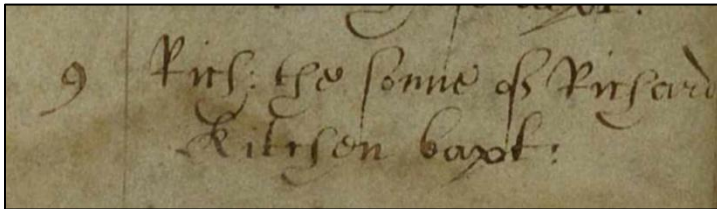 9 Rich: the sonne of Richard
Kitchen bapt: